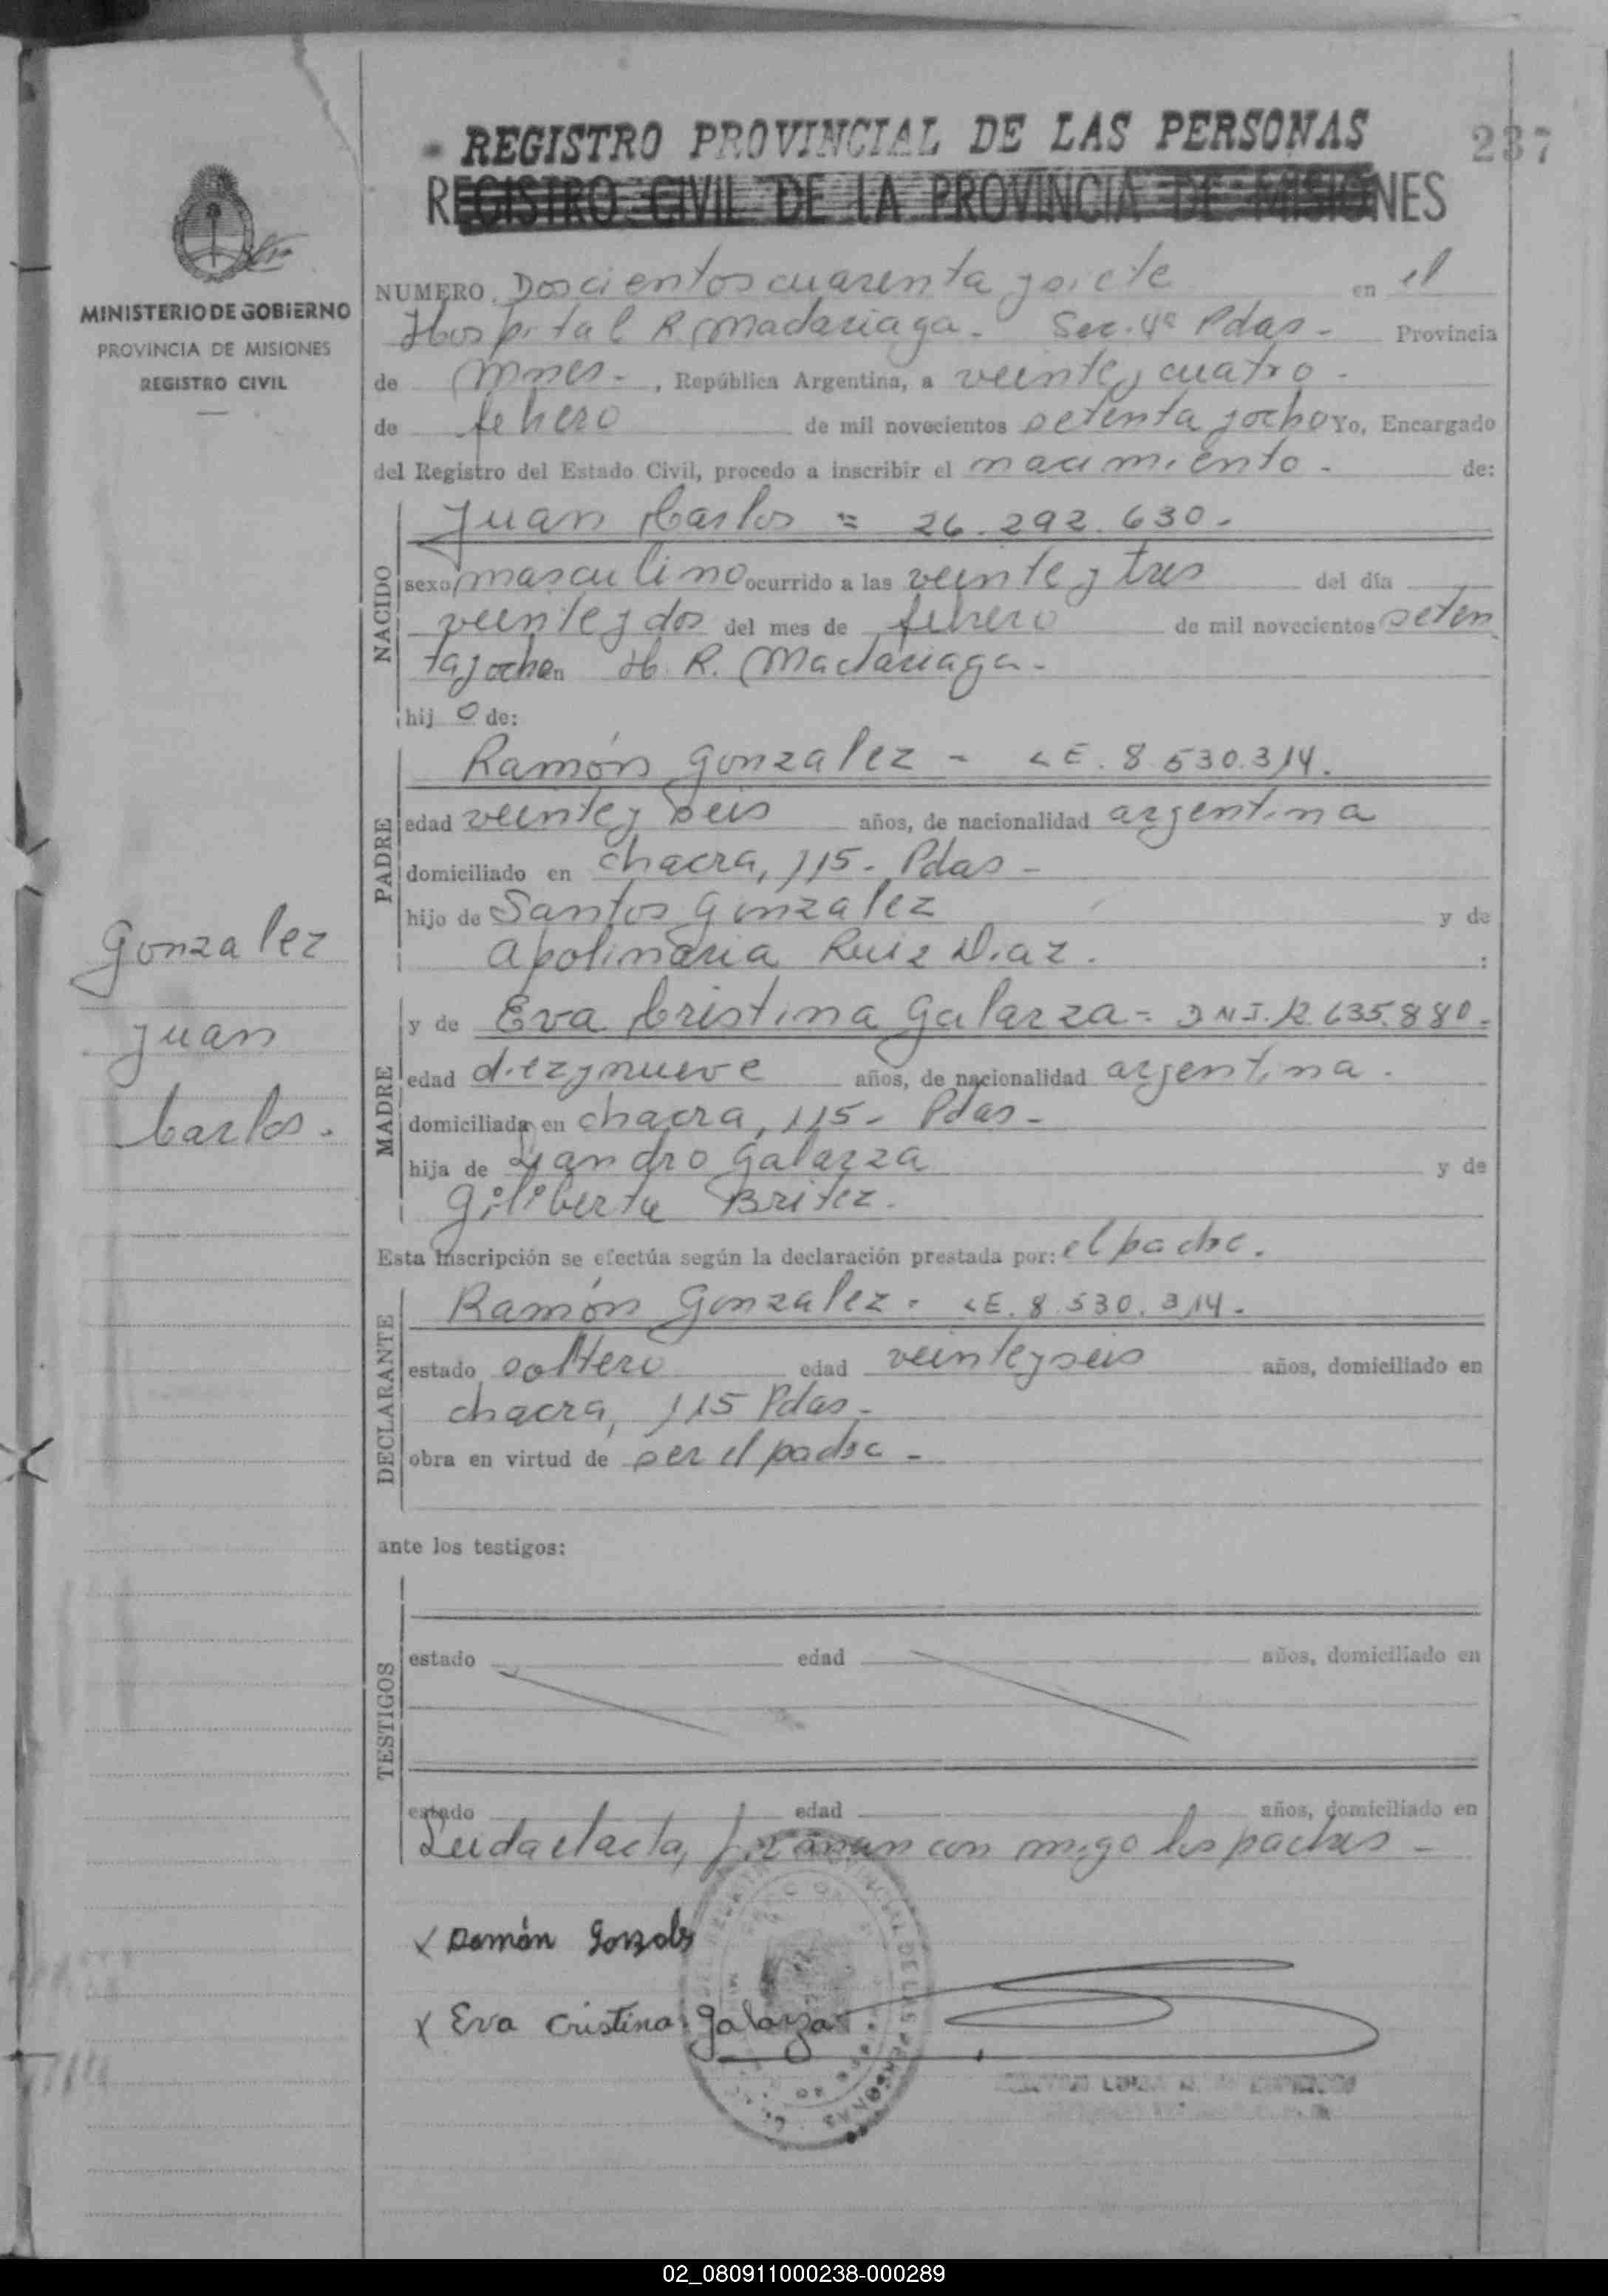 REGISTRO PROVINCIAL DE LAS PERSONAS
237
REGISTRO CIVIL DE LA PROVINCIA DE MISIONES
MINISTERIO DE GOBIERNO
PROVINCIA DE MISIONES
REGISTRO CIVIL
NUMERO Doscientos cuarenta y siete en el
Hospital R. Madariaga - Sec. 4ª Pdas - Provincia
de Mnes - , República Argentina, a veinte y cuatro -
de febrero de mil novecientos setenta y ocho Yo, Encargado
del Registro del Estado Civil, procedo a inscribir el nacimiento - de:
NACIDO
Juan Carlos = 26.292.630.
sexo masculino ocurrido a las veinte y tres del día
veinte y dos del mes de febrero de mil novecientos seten
ta y ocho en H. R. Madariaga -
hij o de:
PADRE
Ramón Gonzalez - LE. 8.530.314.
edad veinte y seis años, de nacionalidad argentina
domiciliado en chacra, 115 - Pdas -
hijo de Santos Gonzalez y de
Apolinaria Ruiz Diaz. :
Gonzalez
Juan
Carlos.
MADRE
y de Eva Cristina Galarza = DNI. 12.635.880.
edad diez y nueve años, de nacionalidad argentina.
domiciliada en chacra, 115 - Pdas -
hija de Liandro Galarza y de
Giliberta Britez.
Esta inscripción se efectúa según la declaración prestada por: el padre.
DECLARANTE
Ramón Gonzalez - LE. 8.530.314.
estado soltero edad veinte y seis años, domiciliado en
chacra, 115 Pdas -
obra en virtud de ser el padre -
ante los testigos:
TESTIGOS
estado edad años, domiciliado en
estado edad años, domiciliado en
Leida el acta, firman con migo los padres -
x Ramón Gonzalez
x Eva Cristina Galarza
02_080911000238-000289